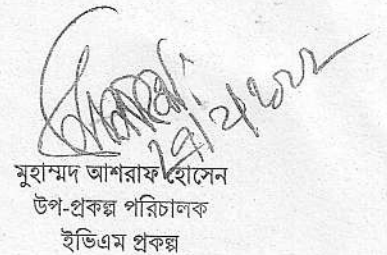 মুহাম্মদ আশরাফ হোসেন
উপ-প্রকল্প পরিচালক
ইভিএম প্রকল্প